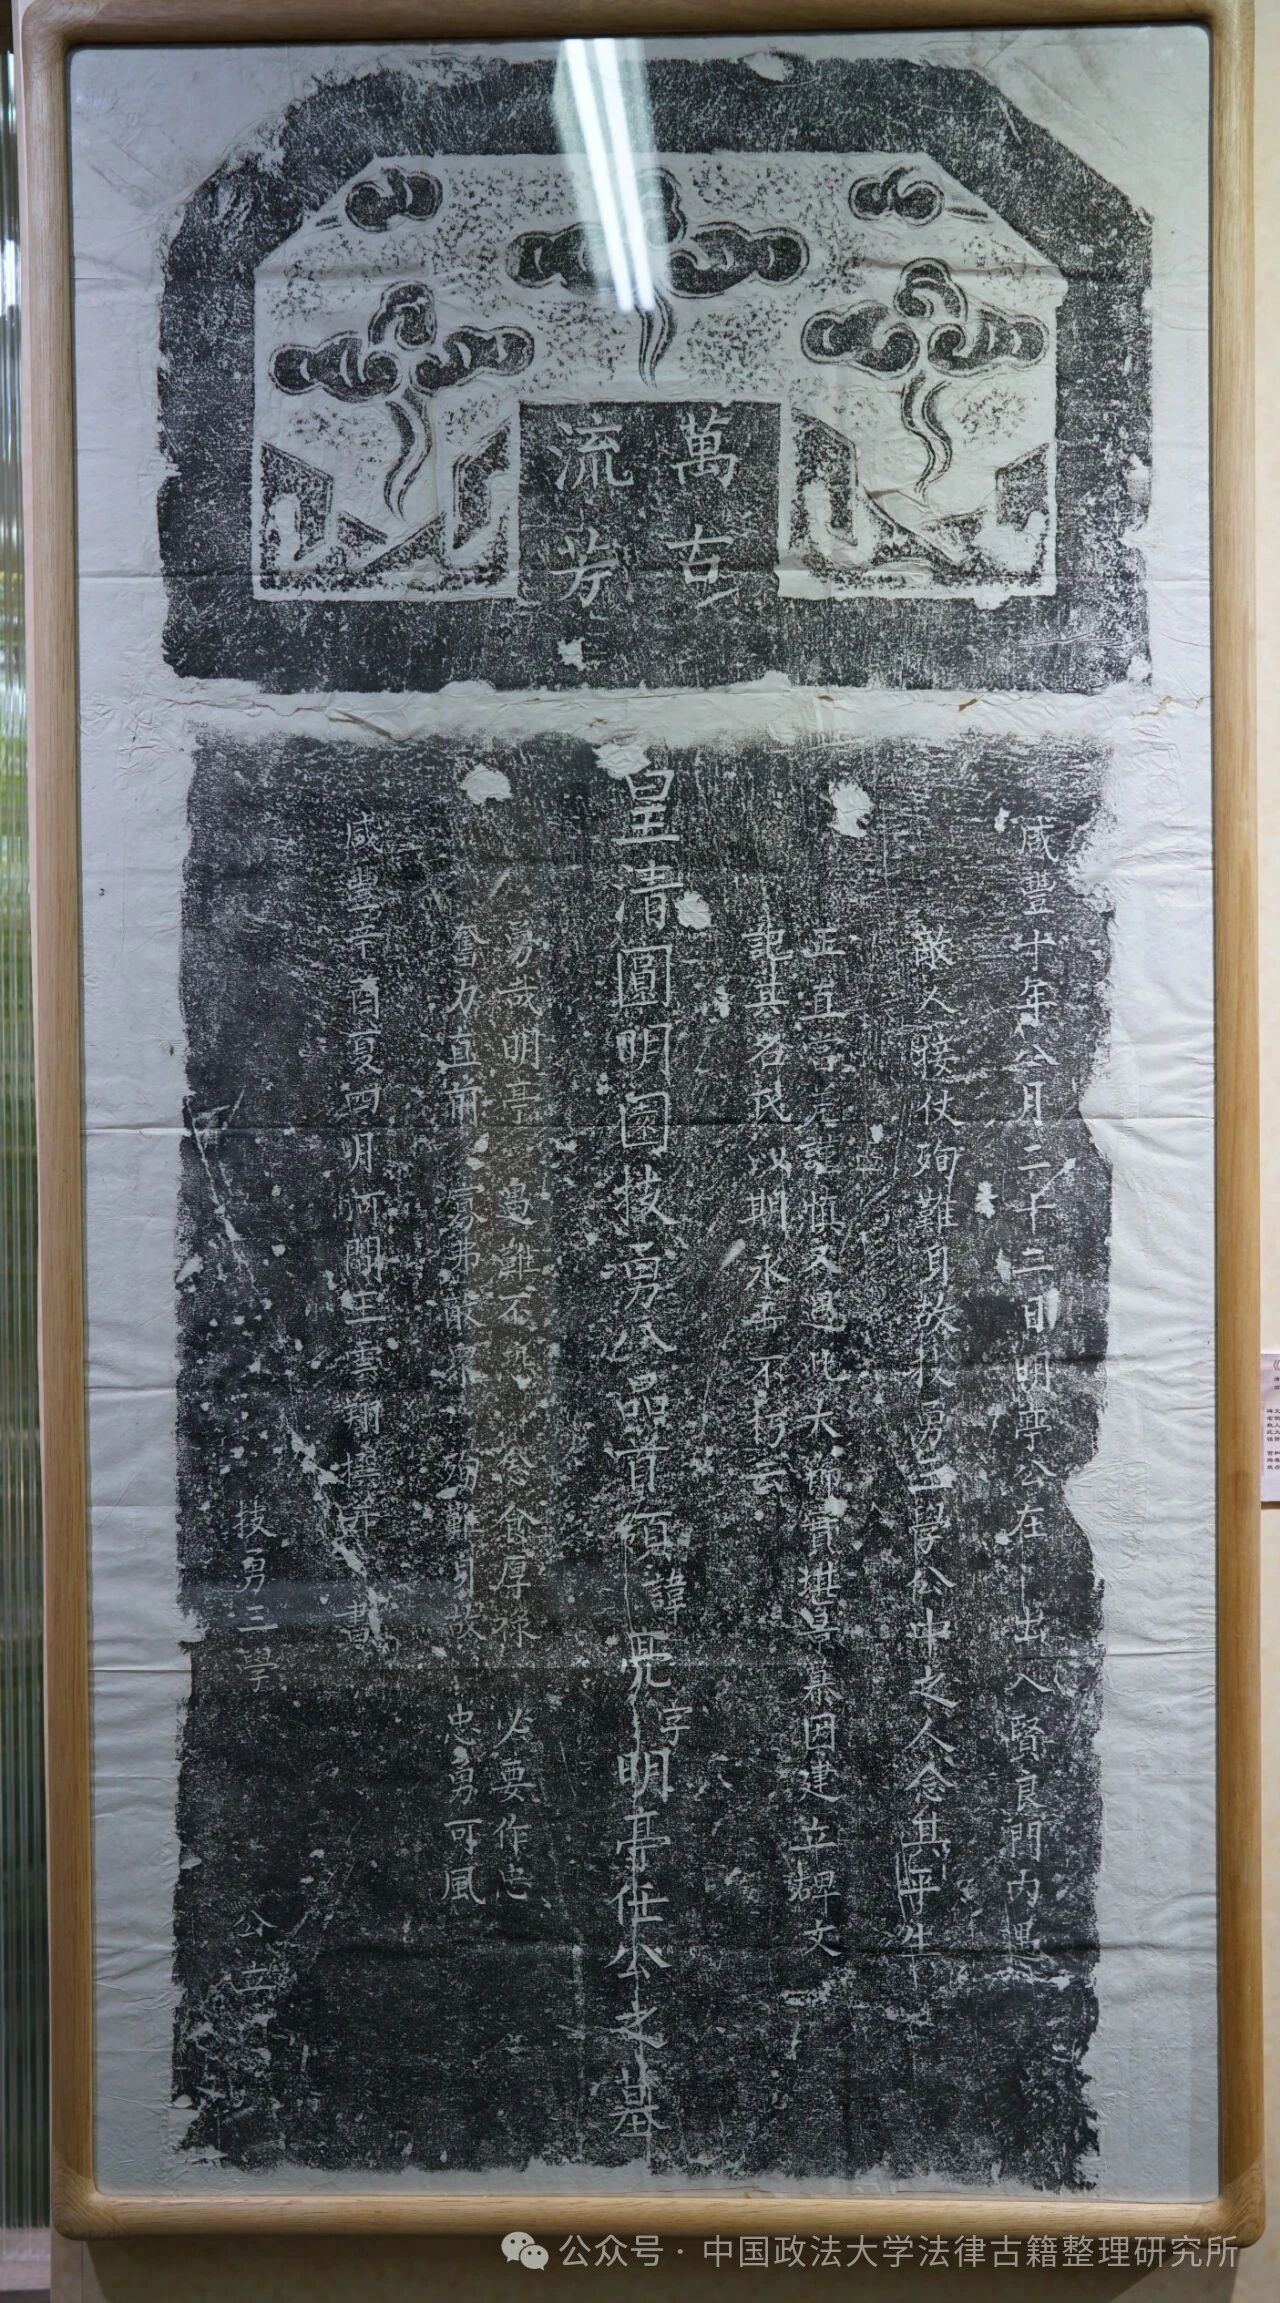 萬古
流芳
咸豐十年八月二十二日明亭公在出入賢良門內遇
敵人接仗殉難身故技勇三學公中之人念其平生
正直當差謹慎又遇此大節實堪景慕因建立碑文
記其名氏以期永垂不朽云
皇清圓明園技勇八品首領諱亮字明亭任公之墓
勇哉明亭 遇難不恐 念食厚祿 必要作忠
奮力直前 寡弗敵眾 殉難身故 忠勇可風
咸豐辛酉夏四月河間王雲翔撰並書
技勇三學 公立
公众号·中国政法大学法律古籍整理研究所